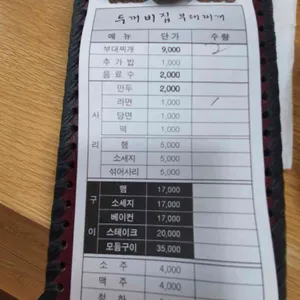 두꺼비집 부대찌개
메뉴 단가 수량
부대찌개 9,000 2
추가밥 1,000
음료수 2,000
사리
만두 2,000
라면 1,000 1
당면 1,000
떡 1,000
햄 5,000
소세지 5,000
섞어사리 5,000
구이
햄 17,000
소세지 17,000
베이컨 17,000
스테이크 20,000
모듬구이 35,000
소주 4,000
맥주 4,000